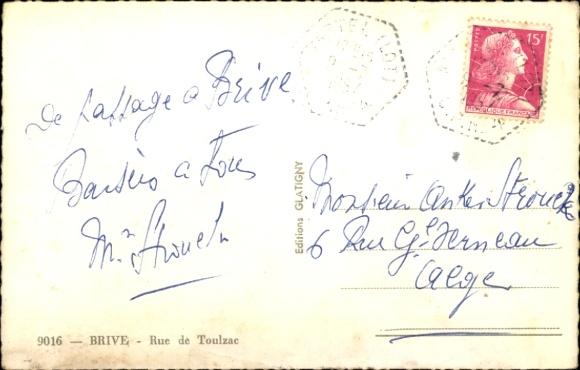 De passage a Brive
Baisers a tous
Mn Strouch
9016 — BRIVE - Rue de Toulzac
Editions GLATIGNY
POSTES
15f
REPUBLIQUE FRANÇAISE
(LOT)
Monsieur
6 Rue Gl
Alger